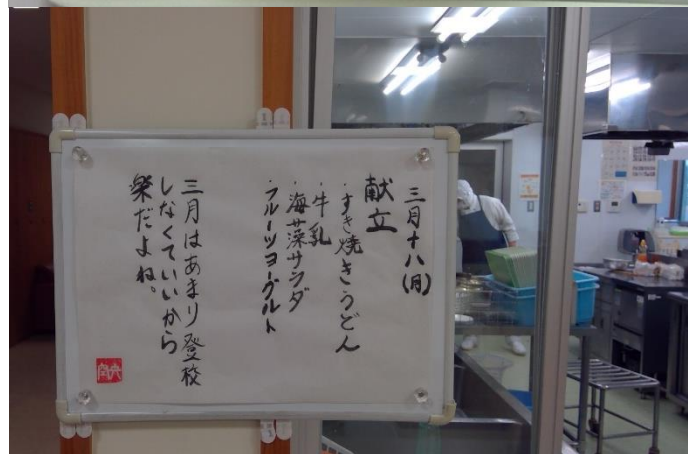 三月十八(月)
献立
・すき焼きうどん
・牛乳
・海藻サラダ
・フルーツヨーグルト
三月はあまり登校
しなくていいから
楽だよね。